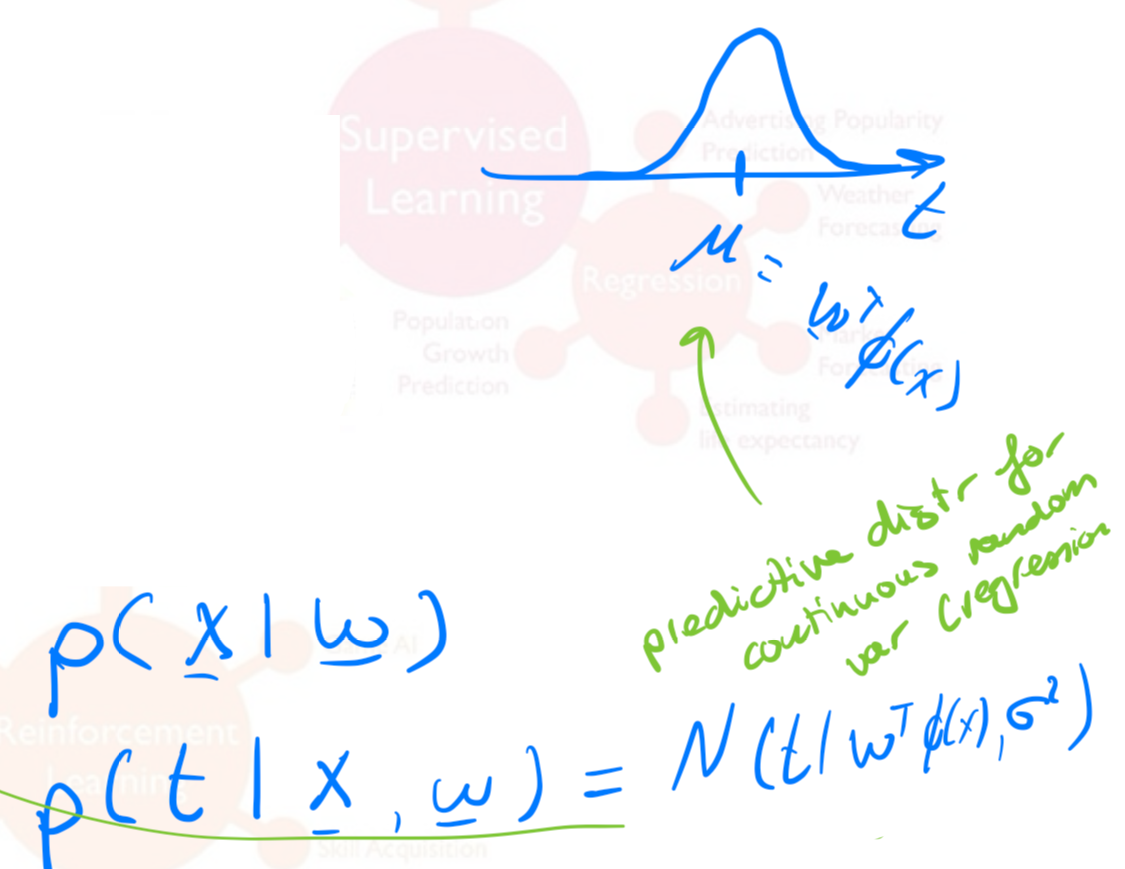 Supervised
Learning
Advertising Popularity
Prediction
Weather
Forecasting
t
μ = w^T ϕ(x)
Regression
Population
Growth
Prediction
Estimating
life expectancy
predictive distr for
continuous random
var (regression
p(x | w)
Reinforcement
Learning
p(t | x, w) = N(t | w^T ϕ(x), σ²)
Skill Acquisition